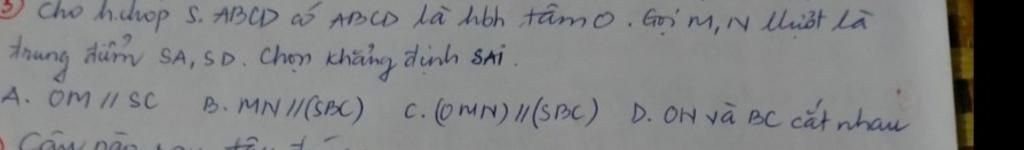 3) Cho h.chóp S.ABCD có ABCD là hbh tâm O. Gọi M, N lluợt là
trung điểm SA, SD. Chọn khẳng định SAi.
A. OM // SC B. MN//(SBC) C. (OMN)//(SBC) D. ON và BC cắt nhau
) Câu nào